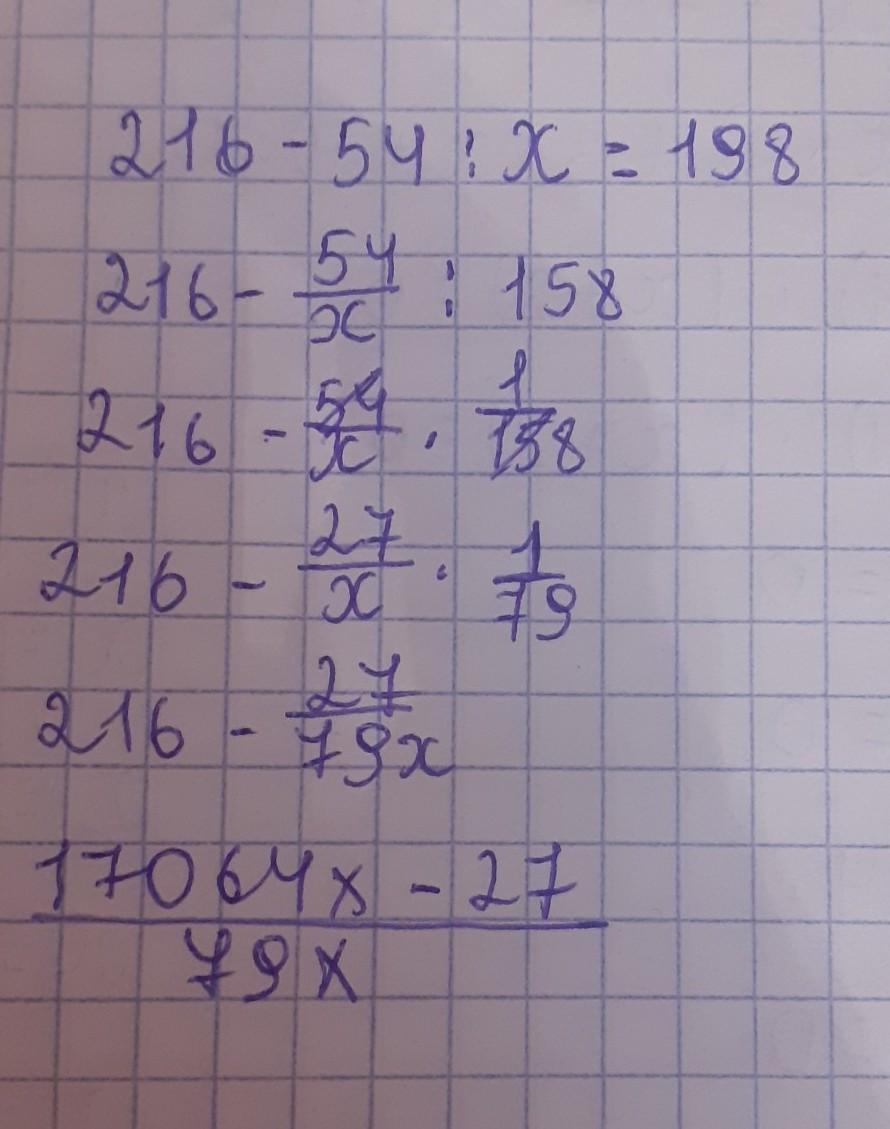 216 - 54 : x = 198
216 - 54/x : 158
216 - 54/x · 1/158
216 - 27/x · 1/79
216 - 27/79x
17064x - 27
79x